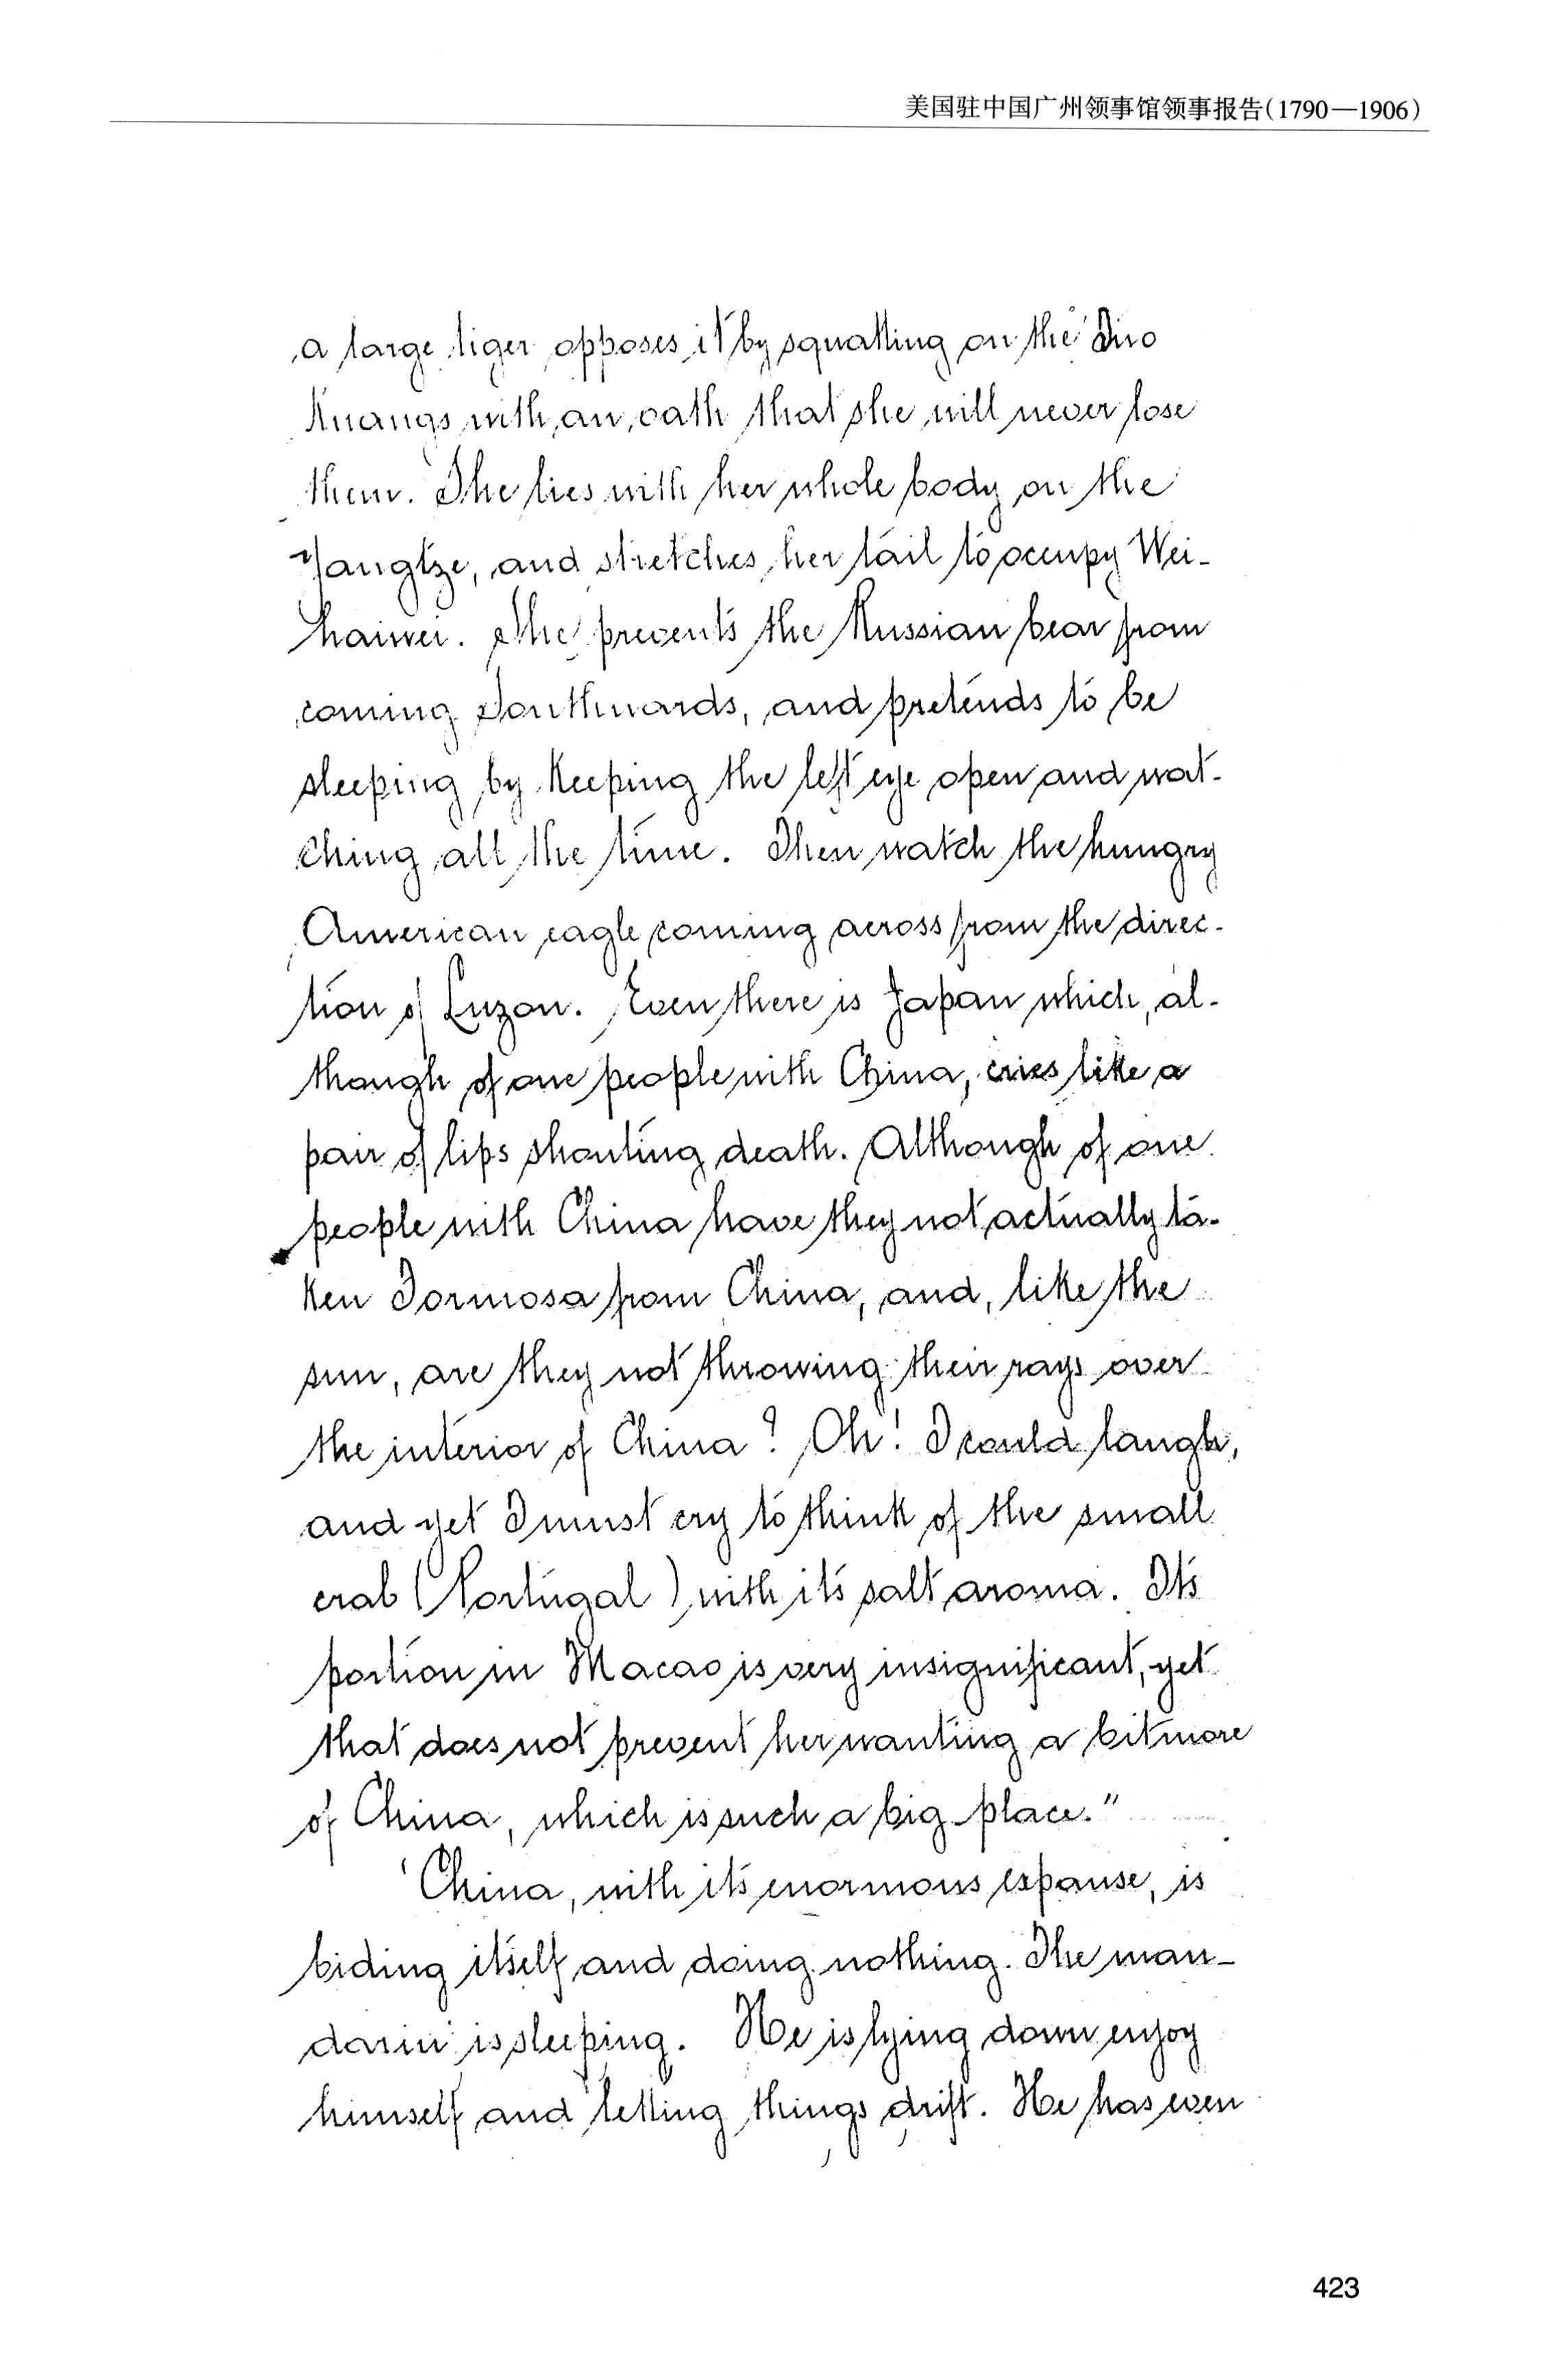 美国驻中国广州领事馆领事报告(1790—1906)
a large tiger opposes it by squatting on the Two
Kuangs with an oath that she will never lose
them. She lies with her whole body on the
Yangtze, and stretches her tail to occupy Wei-
haiwei. She prevents the Russian bear from
coming Southwards, and pretends to be
sleeping by keeping the left eye open and wat-
ching all the time. Then watch the hungry
American eagle coming across from the direc-
tion of Luzon. Even there is Japan which, al-
though of one people with China, cries like a
pair of lips shouting death. Although of one
people with China have they not actually ta-
ken Formosa from China, and, like the
sun, are they not throwing their rays over
the interior of China? Oh! I could laugh,
and yet I must cry to think of the small
crab (Portugal) with its salt aroma. Its
portion in Macao is very insignificant, yet
that does not prevent her wanting a bit more
of China, which is such a big place."
'China, with its enormous expanse, is
biding itself and doing nothing. The man-
darin is sleeping. He is lying down enjoy
himself and letting things drift. He has even
423